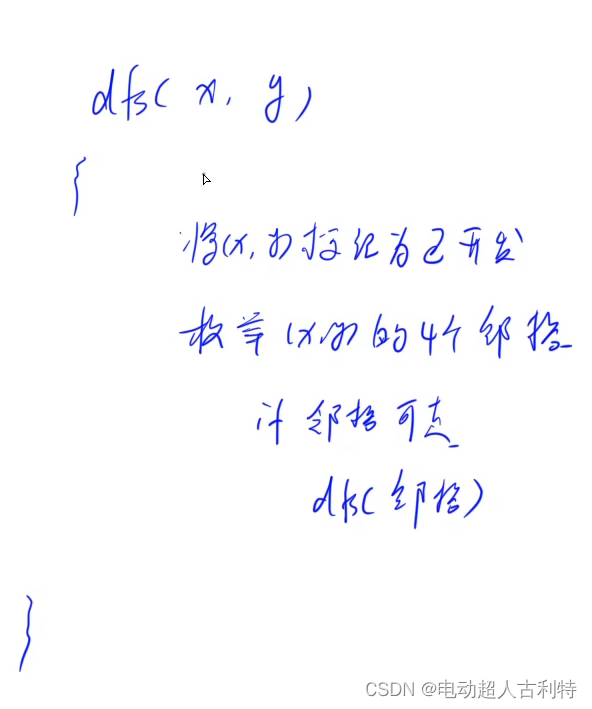 dfs( x, y )
{
将(x, y)标记为已开发
枚举(x,y)的4个邻格
if 邻格可走
dfs(邻格)
}
CSDN @电动超人古利特